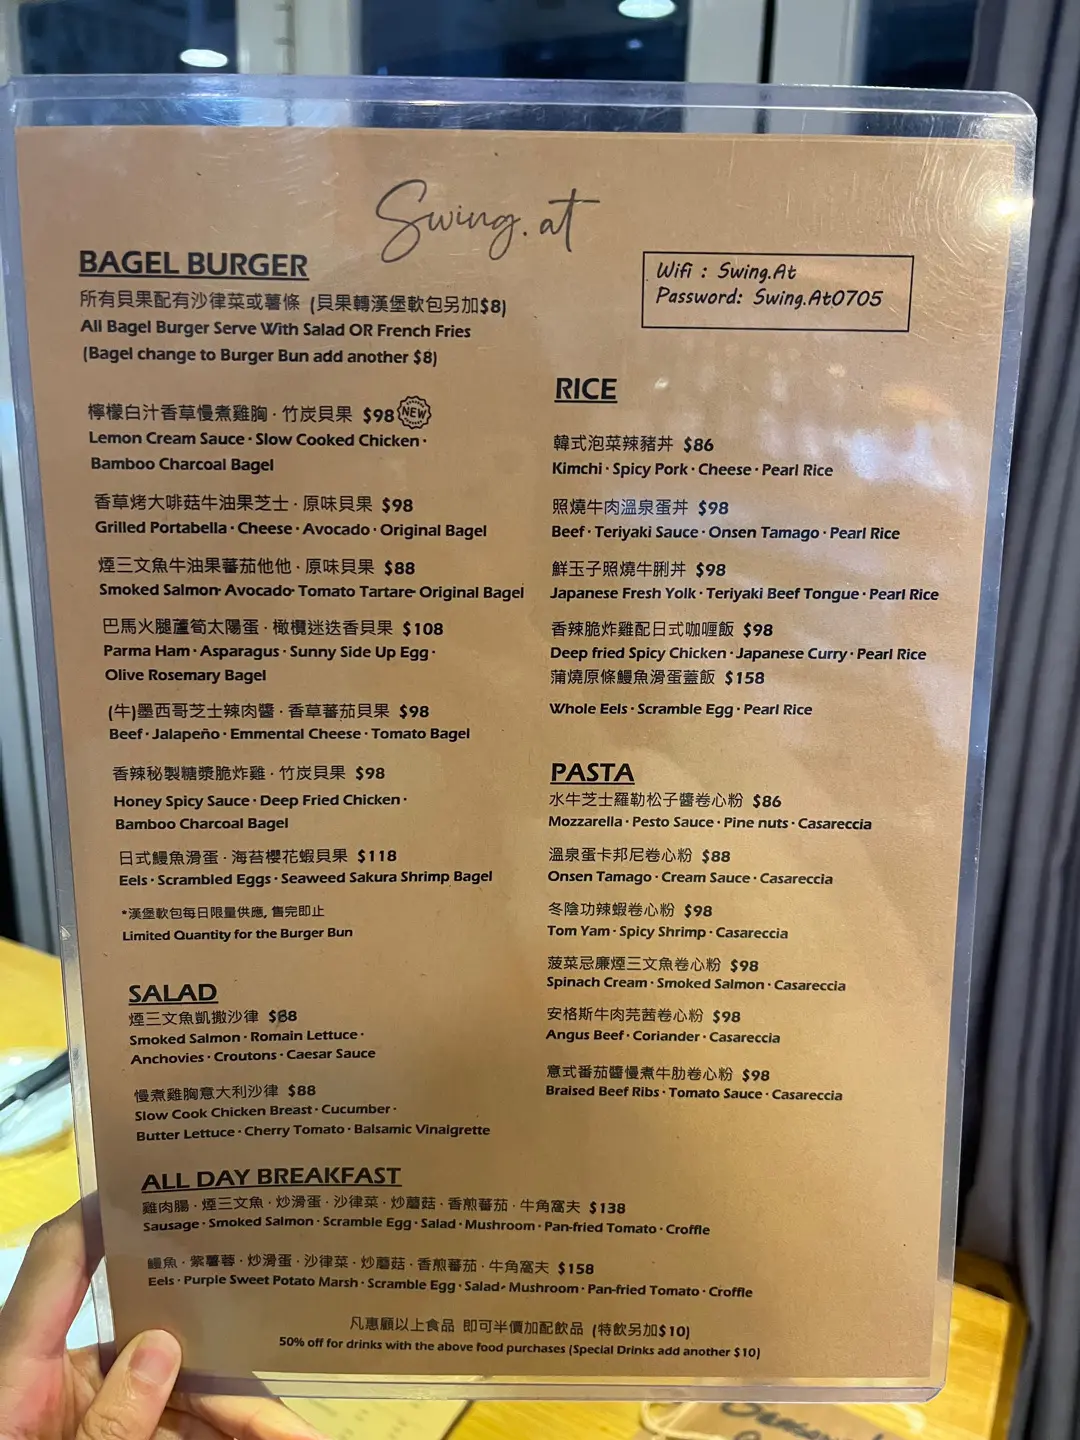 Swing.at
Wifi : Swing.At
Password: Swing.At0705
BAGEL BURGER
所有貝果配有沙律菜或薯條 (貝果轉漢堡軟包另加$8)
All Bagel Burger Serve With Salad OR French Fries
(Bagel change to Burger Bun add another $8)
檸檬白汁香草慢煮雞胸 · 竹炭貝果 $98 NEW
Lemon Cream Sauce · Slow Cooked Chicken ·
Bamboo Charcoal Bagel
香草烤大啡菇牛油果芝士 · 原味貝果 $98
Grilled Portabella · Cheese · Avocado · Original Bagel
煙三文魚牛油果蕃茄他他 · 原味貝果 $88
Smoked Salmon· Avocado· Tomato Tartare· Original Bagel
巴馬火腿蘆筍太陽蛋 · 橄欖迷迭香貝果 $108
Parma Ham · Asparagus · Sunny Side Up Egg ·
Olive Rosemary Bagel
(牛)墨西哥芝士辣肉醬 · 香草蕃茄貝果 $98
Beef · Jalapeño · Emmental Cheese · Tomato Bagel
香辣秘製糖漿脆炸雞 · 竹炭貝果 $98
Honey Spicy Sauce · Deep Fried Chicken ·
Bamboo Charcoal Bagel
日式鰻魚滑蛋 · 海苔櫻花蝦貝果 $118
Eels · Scrambled Eggs · Seaweed Sakura Shrimp Bagel
*漢堡軟包每日限量供應, 售完即止
Limited Quantity for the Burger Bun
SALAD
煙三文魚凱撒沙律
Smoked Salmon · Romain Lettuce ·
Anchovies · Croutons · Caesar Sauce
慢煮雞胸意大利沙律 $88
Slow Cook Chicken Breast · Cucumber ·
Butter Lettuce · Cherry Tomato · Balsamic Vinalgrette
RICE
韓式泡菜辣豬丼 $86
Kimchi · Spicy Pork · Cheese · Pearl Rice
照燒牛肉溫泉蛋丼 $98
Beef · Teriyaki Sauce · Onsen Tamago · Pearl Rice
鮮玉子照燒牛脷丼 $98
Japanese Fresh Yolk · Teriyaki Beef Tongue · Pearl Rice
香辣脆炸雞配日式咖喱飯 $98
Deep fried Spicy Chicken · Japanese Curry · Pearl Rice
蒲燒原條鰻魚滑蛋蓋飯 $158
Whole Eels · Scramble Egg · Pearl Rice
PASTA
水牛芝士羅勒松子醬卷心粉 $86
Mozzarella · Pesto Sauce · Pine nuts · Casareccia
溫泉蛋卡邦尼卷心粉 $88
Onsen Tamago · Cream Sauce · Casareccia
冬陰功辣蝦卷心粉 $98
Tom Yam · Spicy Shrimp · Casareccia
菠菜忌廉煙三文魚卷心粉 $98
Spinach Cream · Smoked Salmon · Casareccia
安格斯牛肉芫茜卷心粉 $98
Angus Beef · Coriander · Casareccia
意式番茄醬慢煮牛肋卷心粉 $98
Braised Beef Ribs · Tomato Sauce · Casareccia
ALL DAY BREAKFAST
雞肉腸 · 煙三文魚 · 炒滑蛋 · 沙律菜 · 炒蘑菇 · 香煎蕃茄 · 牛角窩夫 $138
Sausage · Smoked Salmon · Scramble Egg · Salad · Mushroom · Pan-fried Tomato · Croffle
鰻魚 · 紫薯蓉 · 炒滑蛋 · 沙律菜 · 炒蘑菇 · 香煎蕃茄 · 牛角窩夫 $158
Eels · Purple Sweet Potato Marsh · Scramble Egg · Salad · Mushroom · Pan-fried Tomato · Croffle
凡惠顧以上食品 即可半價加配飲品 (特飲另加$10)
50% off for drinks with the above food purchases (Special Drinks add another $10)